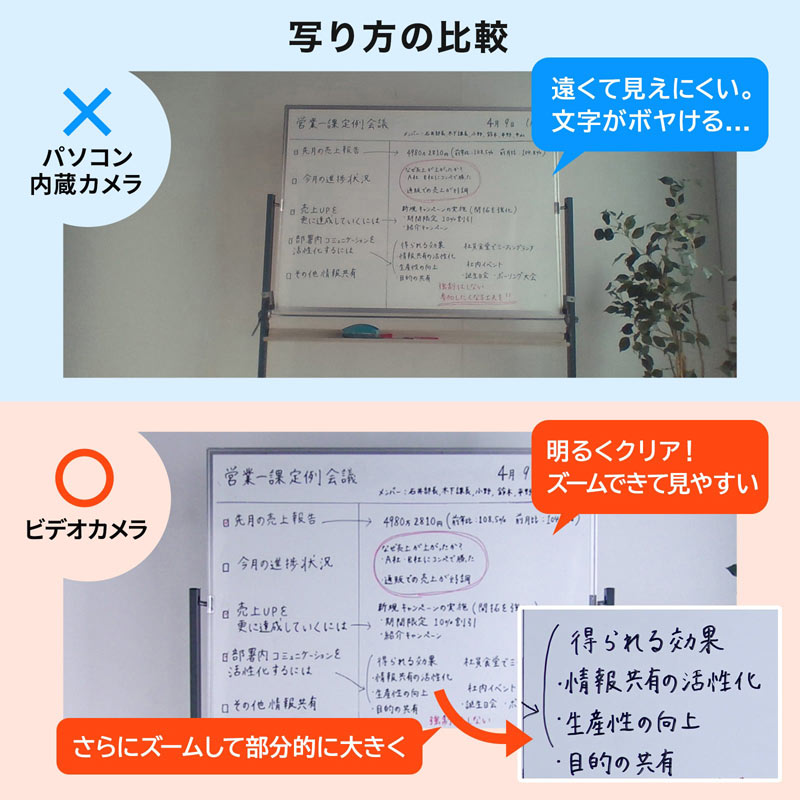 写り方の比較
パソコン
内蔵カメラ
遠くて見えにくい。
文字がボヤける…
営業一課定例会議 4月9日
メンバー：石井部長、木下課長、小野、鈴木、
先月の売上報告 → 4980万2810円(前年比:108.5% 前月比:104.
今月の進捗状況
なぜ売上が上がったか?
・A社・B社にコンペで勝った
・通販での売上が好調
売上UPを
更に達成していくには →
新規キャンペーンの実施(開拓を強化)
・期間限定 10%割引
・紹介キャンペーン
部署内コミュニケーションを
活性化するには →
得られる効果
・情報共有の活性化
・生産性の向上
・目的の共有
社員食堂でミーティングランチ
社内イベント
・誕生日会 ・ボーリング大会
強制はしない
参加したくなる工夫を!!
その他情報共有
ビデオカメラ
明るくクリア！
ズームできて見やすい
営業一課定例会議 4月9
メンバー：石井部長、木下課長、小野、鈴木、
先月の売上報告 → 4980万2810円(前年比:108.5% 前月比:104
今月の進捗状況
なぜ売上が上がったか?
・A社・B社にコンペで勝った
・通販での売上が好調
売上UPを
更に達成していくには →
新規キャンペーンの実施(開拓を強
・期間限定 10%割引
・紹介キャンペーン
部署内コミュニケーションを
活性化するには →
得られる効果
・情報共有の活性化
・生産性の向上
・目的の共有
社員食堂でミ
社内イベント
・誕生日会 ・ボ
強制はしない
その他情報共有
さらにズームして部分的に大きく
得られる効果
・情報共有の活性化
・生産性の向上
・目的の共有